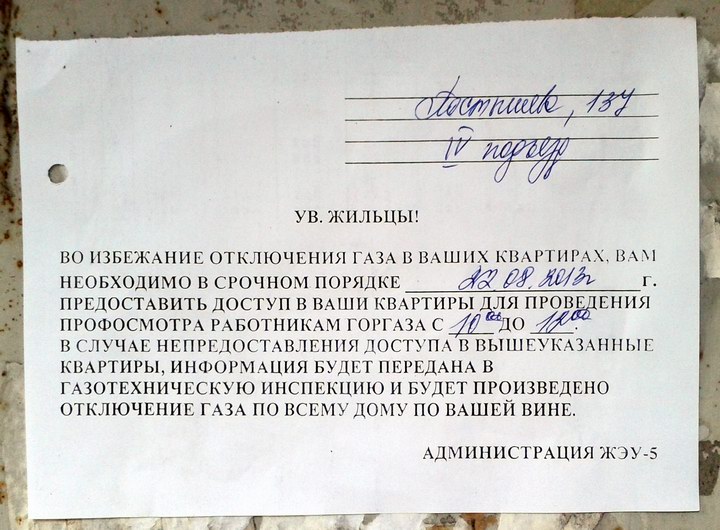 Постышева, 137
IV подъезд
УВ. ЖИЛЬЦЫ!
ВО ИЗБЕЖАНИЕ ОТКЛЮЧЕНИЯ ГАЗА В ВАШИХ КВАРТИРАХ, ВАМ
НЕОБХОДИМО В СРОЧНОМ ПОРЯДКЕ 22.08.2013г г.
ПРЕДОСТАВИТЬ ДОСТУП В ВАШИ КВАРТИРЫ ДЛЯ ПРОВЕДЕНИЯ
ПРОФОСМОТРА РАБОТНИКАМ ГОРГАЗА С 10 00 ДО 12 00.
В СЛУЧАЕ НЕПРЕДОСТАВЛЕНИЯ ДОСТУПА В ВЫШЕУКАЗАННЫЕ
КВАРТИРЫ, ИНФОРМАЦИЯ БУДЕТ ПЕРЕДАНА В
ГАЗОТЕХНИЧЕСКУЮ ИНСПЕКЦИЮ И БУДЕТ ПРОИЗВЕДЕНО
ОТКЛЮЧЕНИЕ ГАЗА ПО ВСЕМУ ДОМУ ПО ВАШЕЙ ВИНЕ.
АДМИНИСТРАЦИЯ ЖЭУ-5